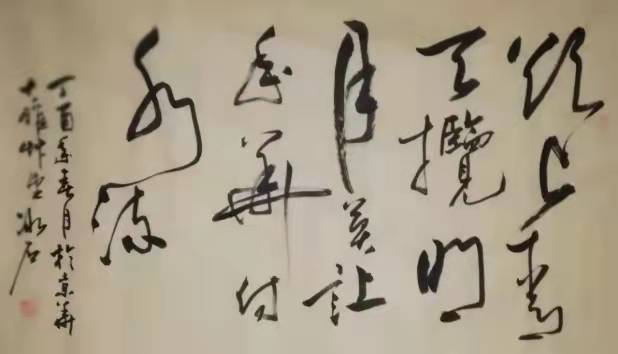 欲上青
天攬明
月莫让
年華付
水流
丁酉年春月於京華
艸堂冰石